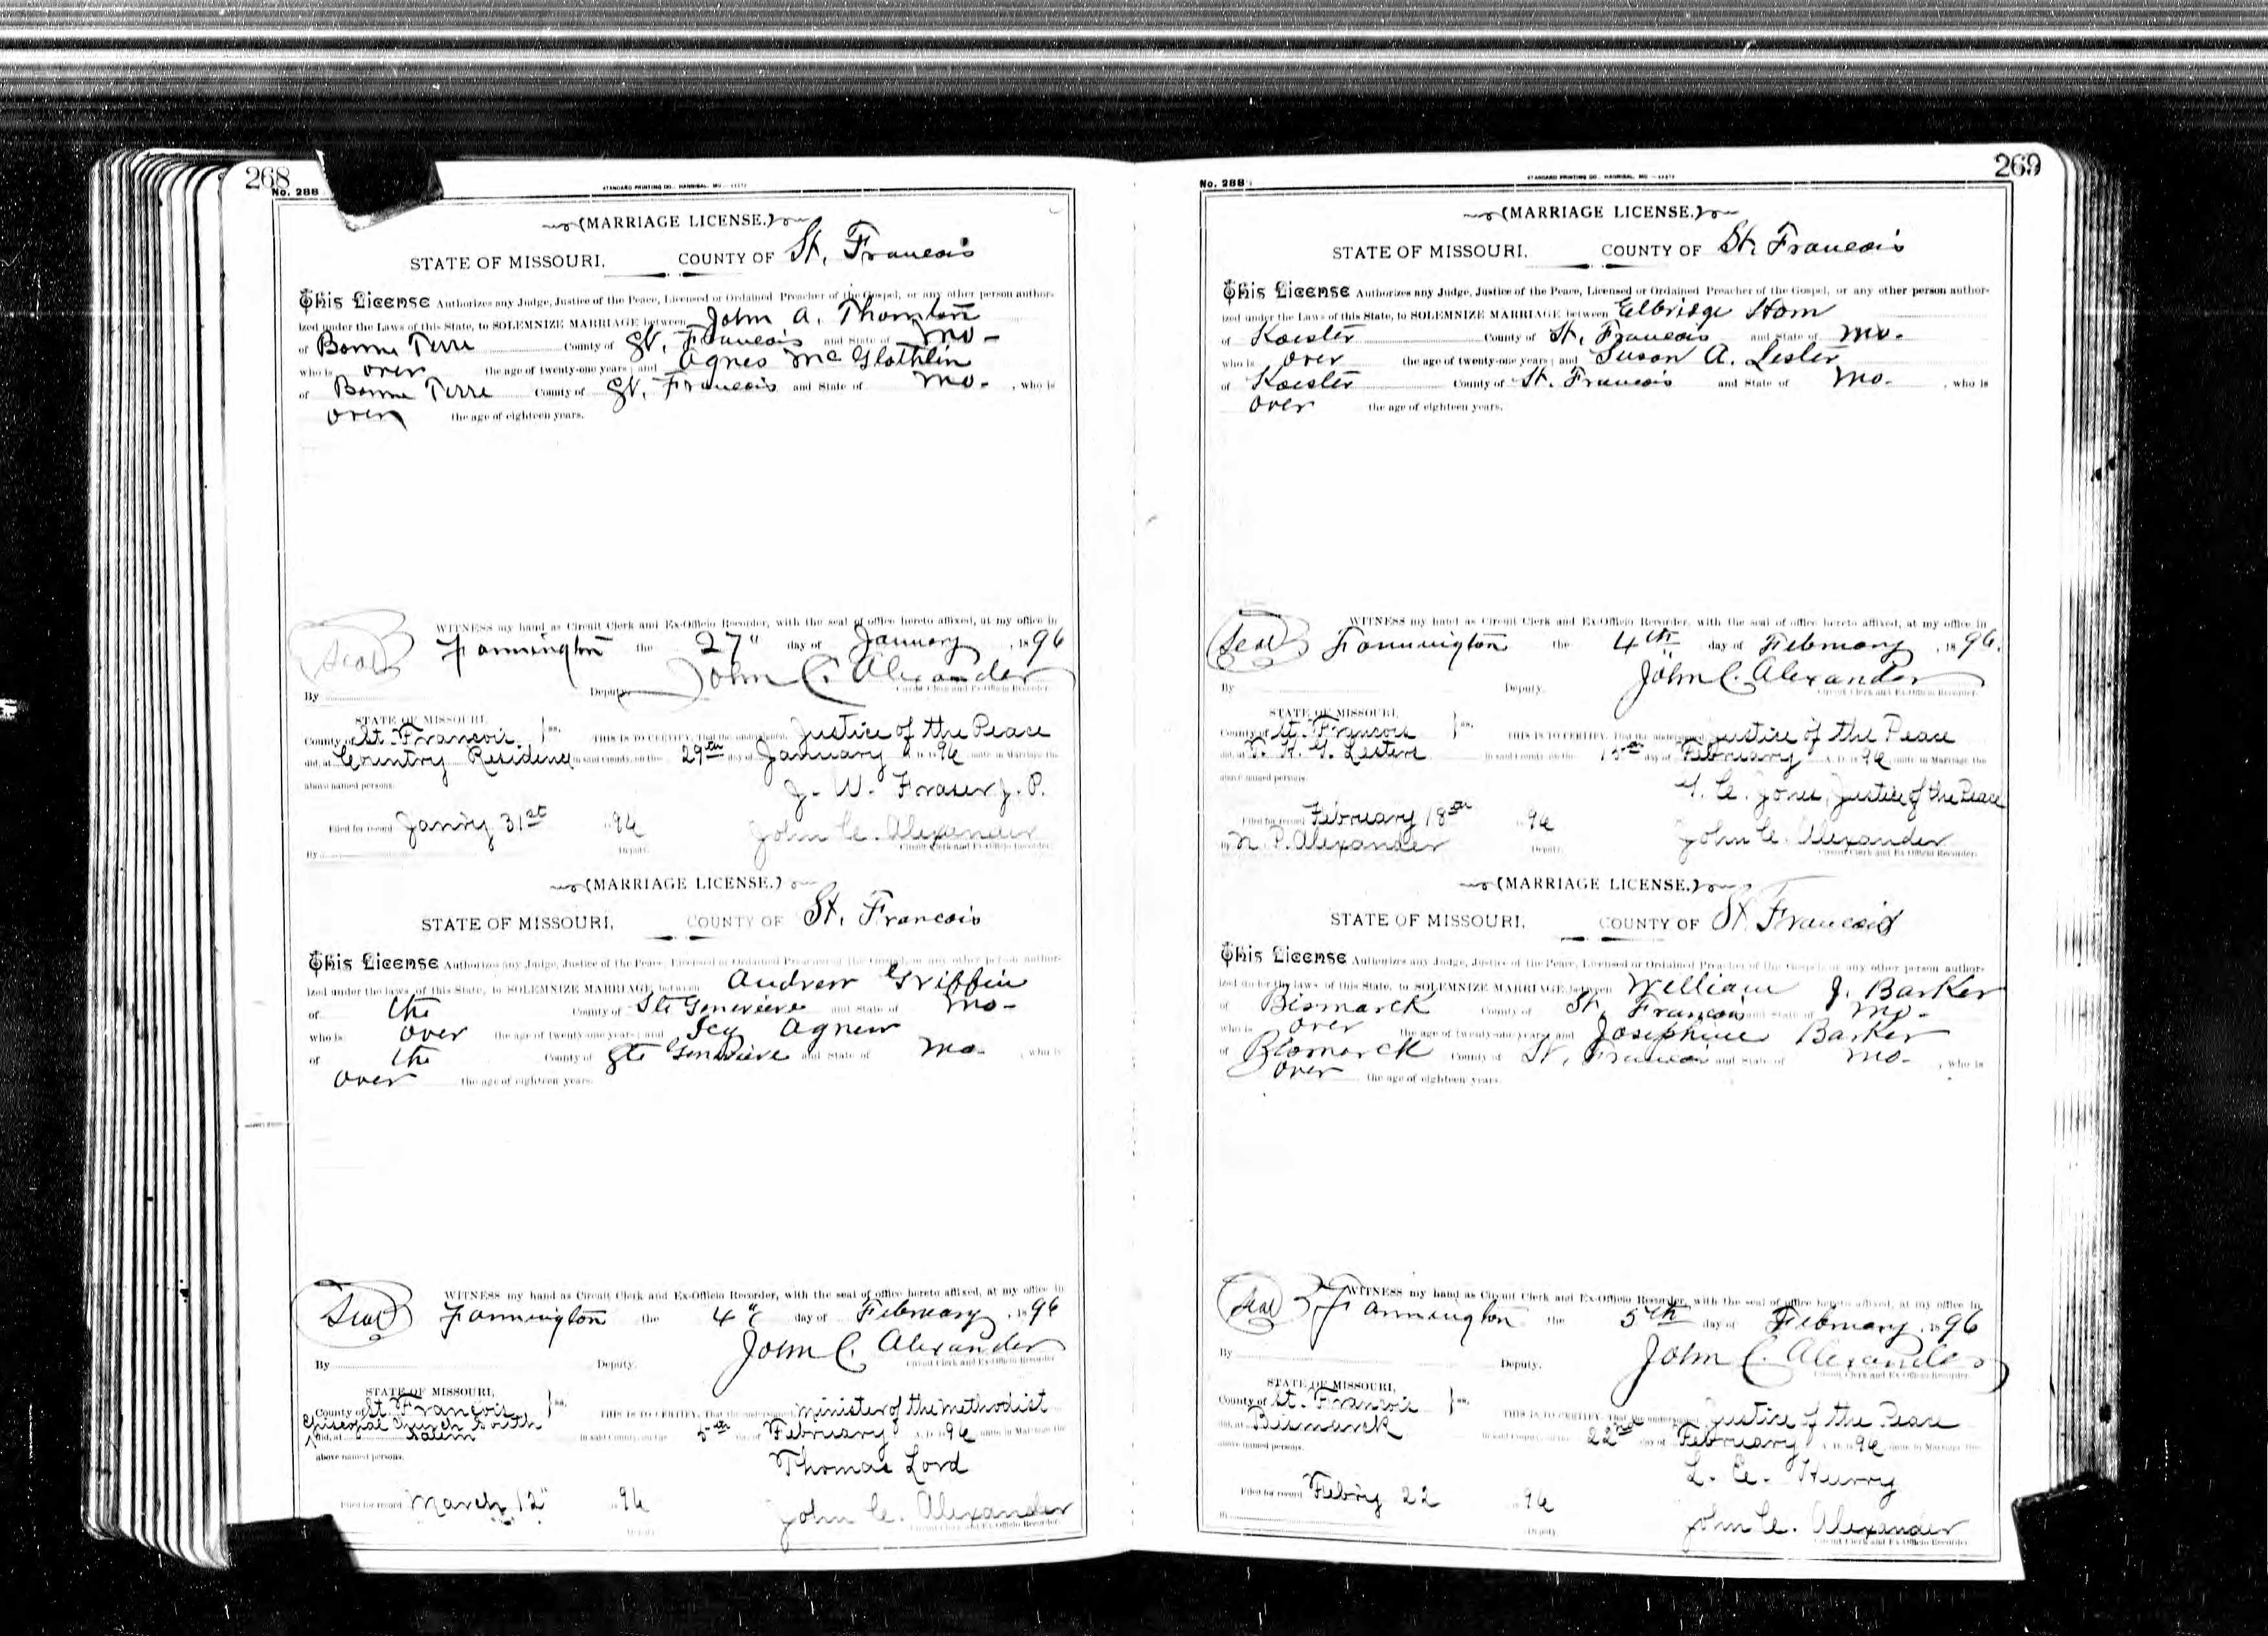 268
No. 288
STANDARD PRINTING CO., HANNIBAL, MO
(MARRIAGE LICENSE.)
STATE OF MISSOURI, COUNTY OF St. Francois
This License Authorizes any Judge, Justice of the Peace, Licensed or Ordained Preacher of the Gospel, or any other person author-
ized under the Laws of this State, to SOLEMNIZE MARRIAGE between John A. Thornton
of Bonne Terre County of St. Francois and State of Mo-
who is over the age of twenty-one years; and Agnes McGlothlin
of Bonne Terre County of St. Francois and State of Mo-, who is
over the age of eighteen years.
WITNESS my hand as Circuit Clerk and Ex-Officio Recorder, with the seal of office hereto affixed, at my office in
Seal Farmington the 27" day of January, 1896
John C. Alexander
By Deputy. Circuit Clerk and Ex-Officio Recorder.
STATE OF MISSOURI,
County of St. Francois ss. THIS IS TO CERTIFY, That the undersigned Justice of the Peace
did, at Country Residence in said County, on the 29th day of January A. D. 1896 unite in Marriage the
above named persons.
J. W. Fraser J. P.
Filed for record Janry 31st 1896 John C. Alexander
By Deputy. Circuit Clerk and Ex-Officio Recorder.
(MARRIAGE LICENSE.)
STATE OF MISSOURI, COUNTY OF St. Francois
This License Authorizes any Judge, Justice of the Peace, Licensed or Ordained Preacher of the Gospel, or any other person author-
ized under the laws of this State, to SOLEMNIZE MARRIAGE between Andrew Griffin
of the County of Ste Genevieve and State of Mo-
who is over the age of twenty-one years; and Icy Agnew
of the County of Ste Genevieve and State of Mo-, who is
over the age of eighteen years.
WITNESS my hand as Circuit Clerk and Ex-Officio Recorder, with the seal of office hereto affixed, at my office in
Seal Farmington the 4" day of February, 1896
John C. Alexander
By Deputy. Circuit Clerk and Ex-Officio Recorder.
STATE OF MISSOURI,
County of St. Francois ss. THIS IS TO CERTIFY, That the undersigned minister of the methodist
Episcopal Church South
did, at Salem in said County, on the 5th day of February A. D. 1896 unite in Marriage the
above named persons.
Thomas Lord
Filed for record March 12" 1896 John C. Alexander
Deputy Circuit Clerk and Ex-Officio Recorder.
269
No. 288
STANDARD PRINTING CO., HANNIBAL, MO
(MARRIAGE LICENSE.)
STATE OF MISSOURI, COUNTY OF St. Francois
This License Authorizes any Judge, Justice of the Peace, Licensed or Ordained Preacher of the Gospel, or any other person author-
ized under the Laws of this State, to SOLEMNIZE MARRIAGE between Elbridge Horn
of Koester County of St. Francois and State of Mo-
who is over the age of twenty-one years; and Susan A. Lester
of Koester County of St. Francois and State of Mo-, who is
over the age of eighteen years.
WITNESS my hand as Circuit Clerk and Ex-Officio Recorder, with the seal of office hereto affixed, at my office in
Seal Farmington the 4th day of February, 1896.
John C. Alexander
By Deputy. Circuit Clerk and Ex-Officio Recorder.
STATE OF MISSOURI,
County of St. Francois ss. THIS IS TO CERTIFY, That the undersigned Justice of the Peace
did, at Lesters in said County, on the day of February A. D. 1896 unite in Marriage the
above named persons.
Jones, Justice of the Peace
Filed for record February 18th 1896 John C. Alexander
By N. P. Alexander Deputy. Circuit Clerk and Ex-Officio Recorder.
(MARRIAGE LICENSE.)
STATE OF MISSOURI, COUNTY OF St. Francois
This License Authorizes any Judge, Justice of the Peace, Licensed or Ordained Preacher of the Gospel, or any other person author-
ized under the laws of this State, to SOLEMNIZE MARRIAGE between William J. Barker
of Bismarck County of St. Francois and State of Mo-
who is over the age of twenty-one years; and Josephine Barker
of Bismarck County of St. Francois and State of Mo-, who is
over the age of eighteen years.
WITNESS my hand as Circuit Clerk and Ex-Officio Recorder, with the seal of office hereto affixed, at my office in
Seal Farmington the 5th day of February, 1896
John C. Alexander
By Deputy. Circuit Clerk and Ex-Officio Recorder.
STATE OF MISSOURI,
County of St. Francois ss. THIS IS TO CERTIFY, That the undersigned Justice of the Peace
did, at Bismarck in said County, on the 22nd day of February A. D. 1896 unite in Marriage the
above named persons.
Hurry
Filed for record Febry 22 1896 John C. Alexander
By Deputy Circuit Clerk and Ex-Officio Recorder.